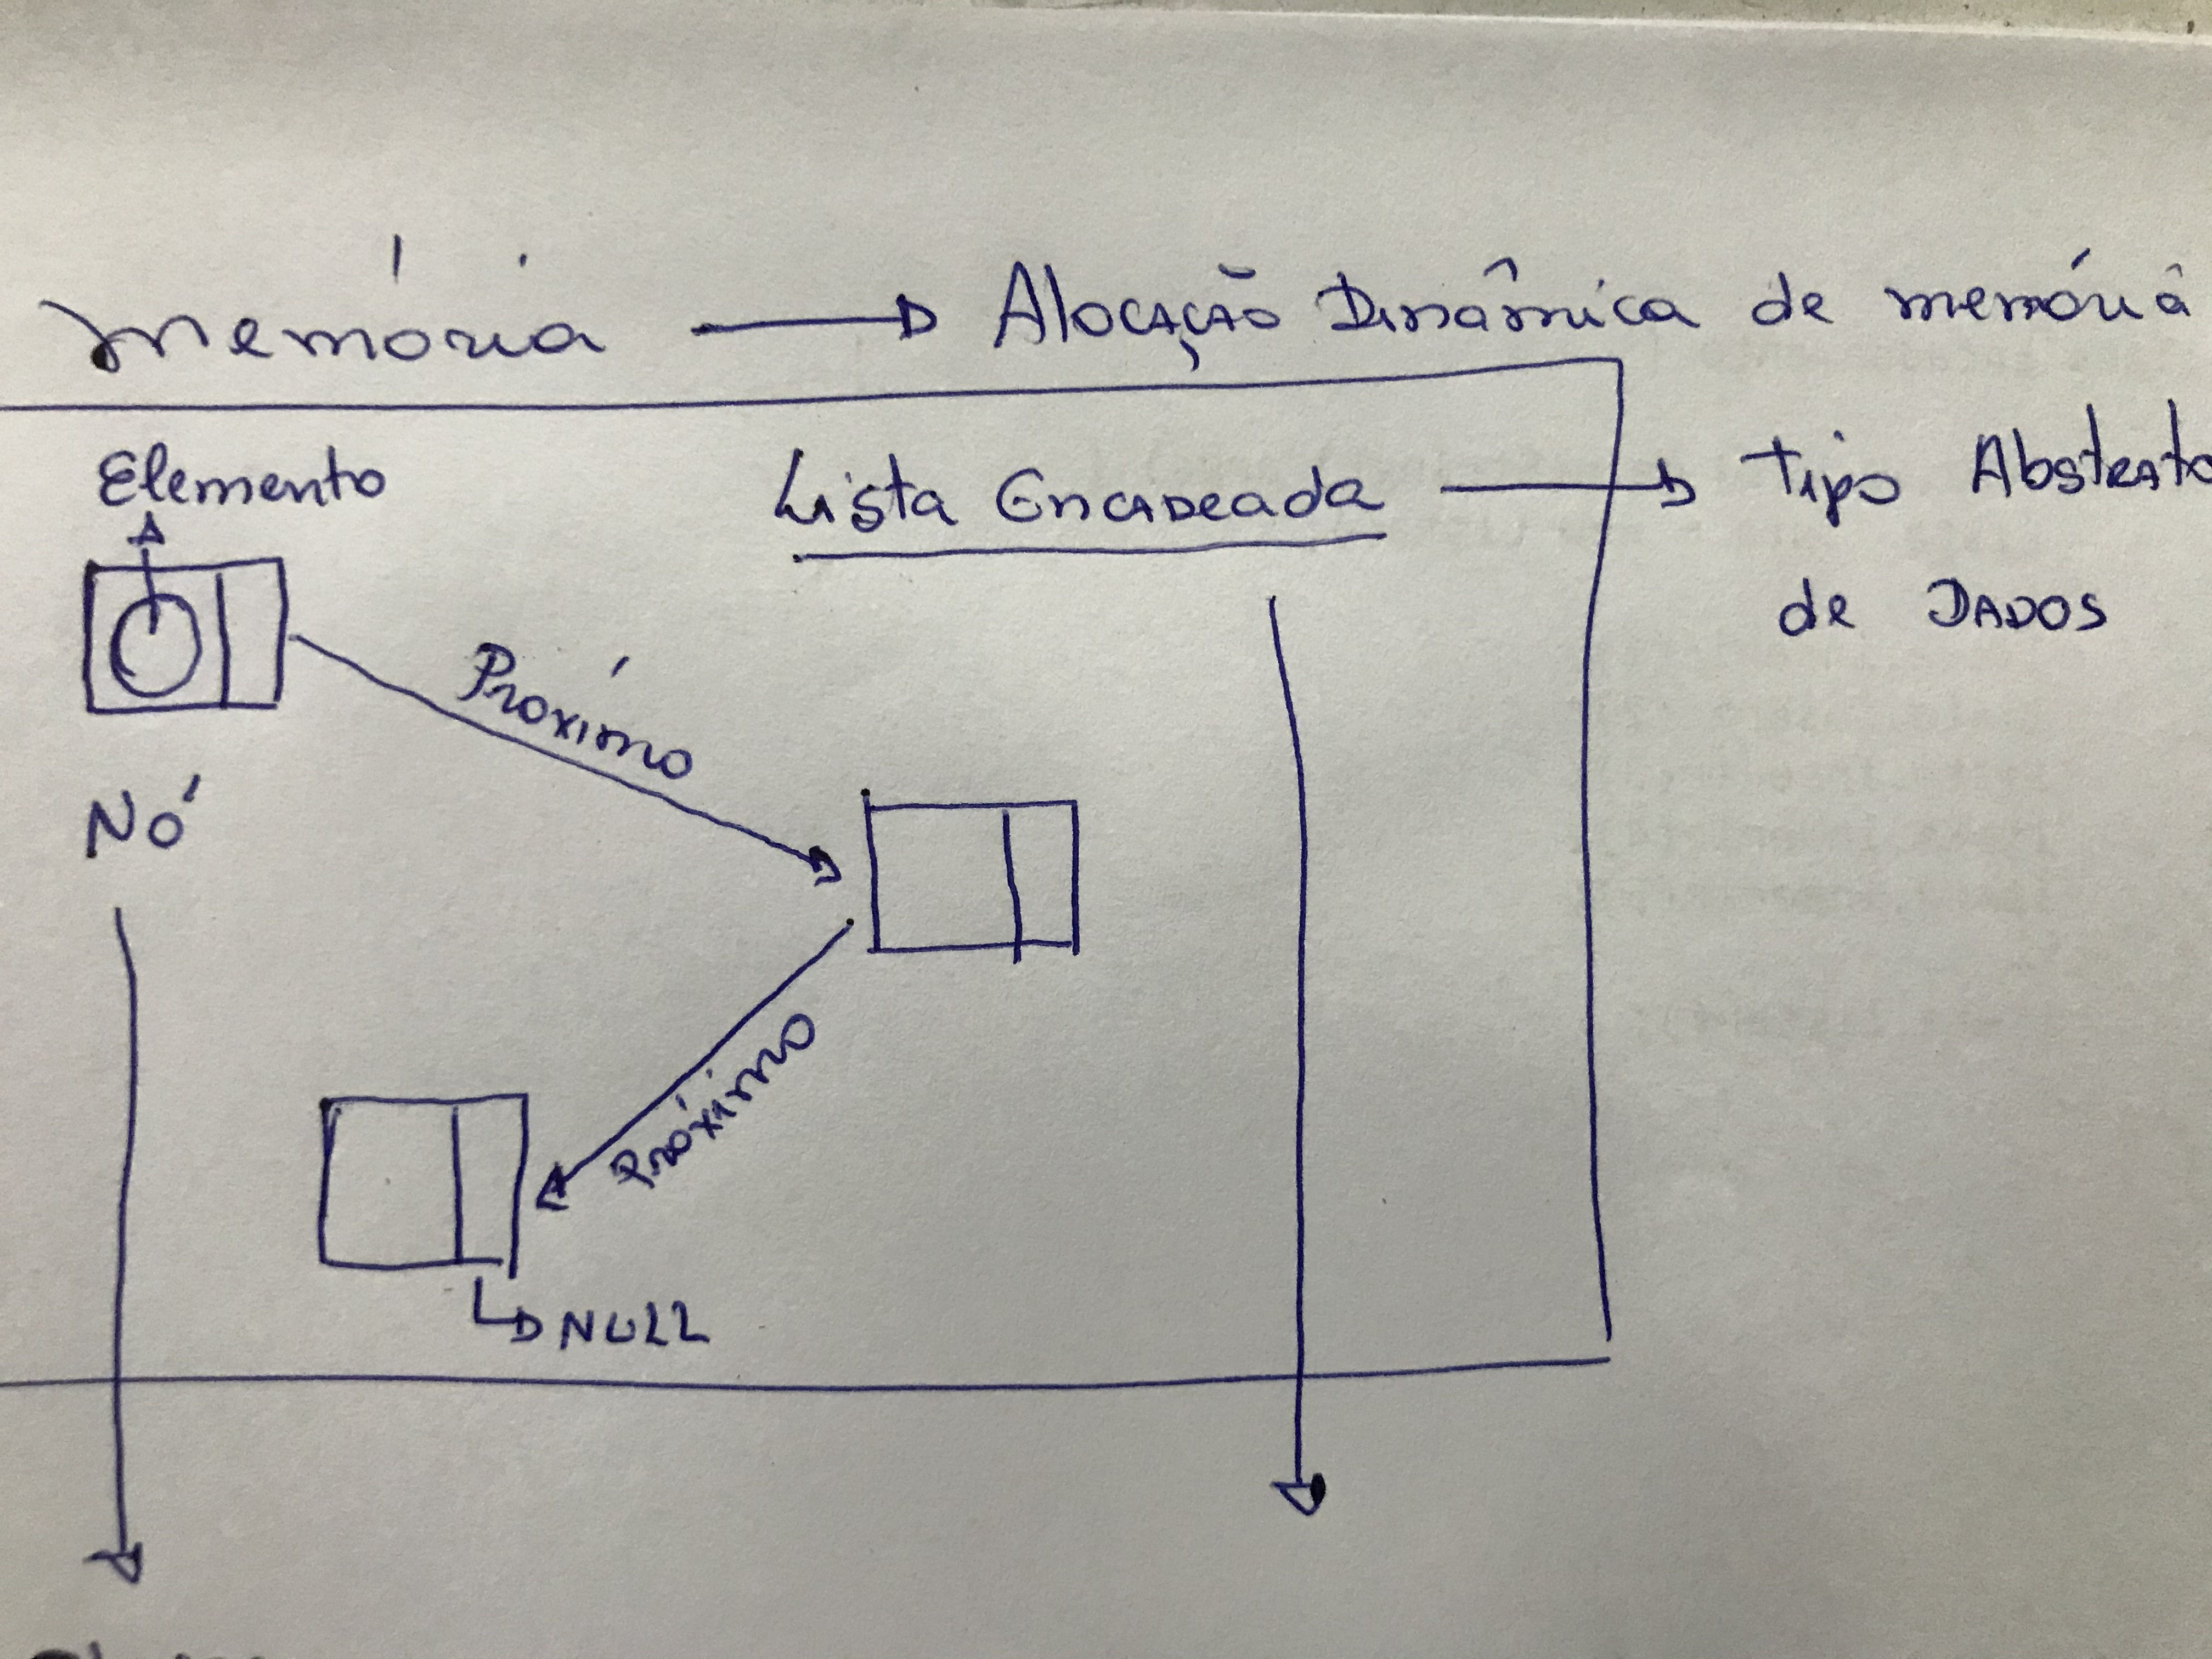 Memória → Alocação Dinâmica de memória
Elemento
Lista Encadeada → Tipo Abstrato
de DADOS
Próximo
Nó
Próximo
NULL